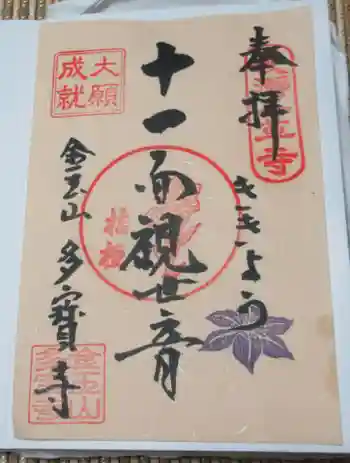 奉拝
ききょう
十一面観世音
金玉山 多寳寺
大願
成就
桔梗
金玉山
多宝寺